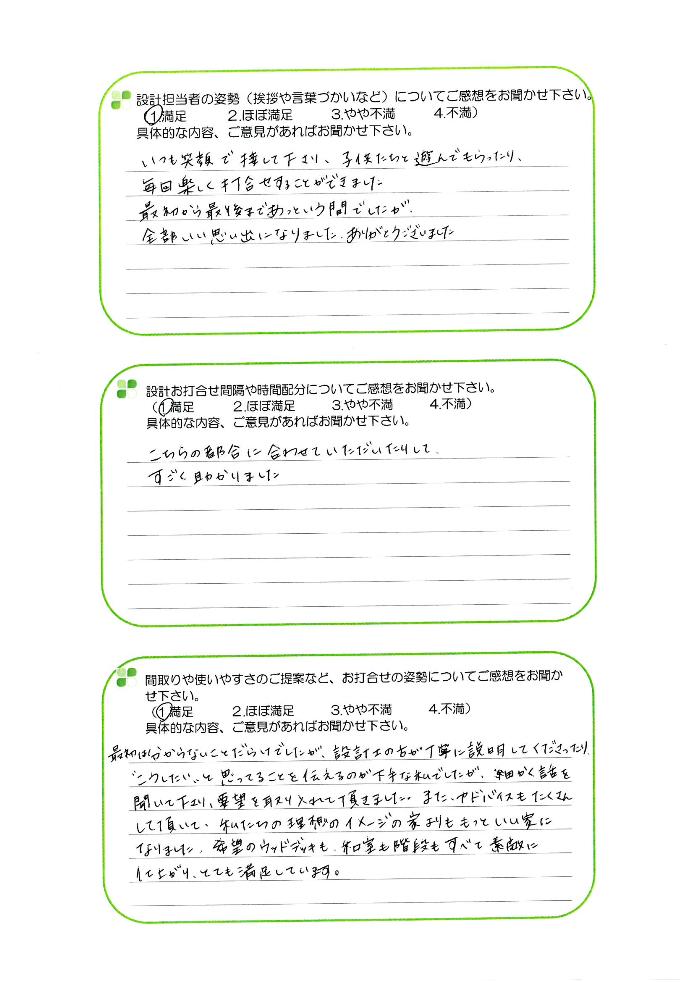 設計担当者の姿勢（挨拶や言葉づかいなど）についてご感想をお聞かせ下さい。
（①満足 2.ほぼ満足 3.やや不満 4.不満）
具体的な内容、ご意見があればお聞かせ下さい。
いつも笑顔で接して下さり、子供たちと遊んでもらったり、
毎回楽しく打合せすることができました
最初から最後まであっという間でしたが、
全部いい思い出になりました。ありがとうございました
設計お打合せ間隔や時間配分についてご感想をお聞かせ下さい。
（①満足 2.ほぼ満足 3.やや不満 4.不満）
具体的な内容、ご意見があればお聞かせ下さい。
こちらの都合に合わせていただいたりして、
すごく助かりました
間取りや使いやすさのご提案など、お打合せの姿勢についてご感想をお聞か
せ下さい。
（①満足 2.ほぼ満足 3.やや不満 4.不満）
具体的な内容、ご意見があればお聞かせ下さい。
最初は分からないことだらけでしたが、設計士の方が丁寧に説明してくださったり、
"こうしたい"と思ってることを伝えるのが下手な私でしたが、細かく話を
聞いて下さり、要望を取り入れて頂きました。また、アドバイスもたくさん
して頂いて、私たちの理想のイメージの家よりももっといい家に
なりました。希望のウッドデッキも、和室も階段もすべて素敵に
仕上がり、とても満足しています。